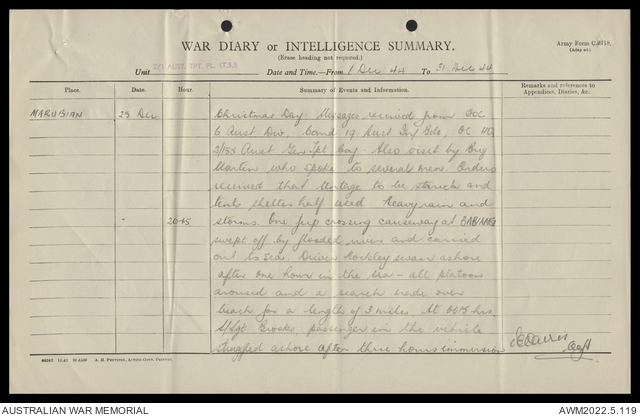 WAR DIARY or INTELLIGENCE SUMMARY.
(Erase heading not required.)
Army Form C.2118.
(Adapted.)
Unit 2/1 AUST. TPT. PL. (T.S.) Date and Time:—From 1 Dec 44 To 31 Dec 44
Place. Date. Hour. Summary of Events and Information. Remarks and references to Appendices, Diaries, &c.
MARUBIAN 25 Dec Christmas Day. Messages received from GOC
6 Aust Div, Comd 19 Aust Inf Bde, OC HQ
Aust Gen Tpt Coy. Also visit by Brig
Martin who spoke to several men. Orders
received that to be struck and
tents shelter half used. Heavy rain and
" 2045 storms. One jeep crossing causeway at
swept off by flooded river and carried
out to sea. Driver swam ashore
after one hour in the sea - all platoons
aroused and a search made over
beach for a length of 3 miles. At 0015 hrs
S/Sgt passenger in the vehicle
struggled ashore after three hours immersion
Capt
A. H. Pettifer, Acting Govt. Printer.
AUSTRALIAN WAR MEMORIAL AWM2022.5.119